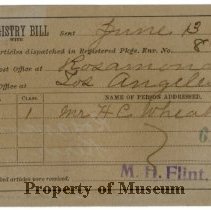 GISTRY BILL Sent June 13
WITH
Articles dispatched in Registered Pkge. Env. No. 8
Post Office at Rosamond
Office at Los Angeles
CLASS. NAME OF PERSON ADDRESSED.
1 Mr H C Wheat
6
M. H. Flint,
articles were received.
Property of Museum